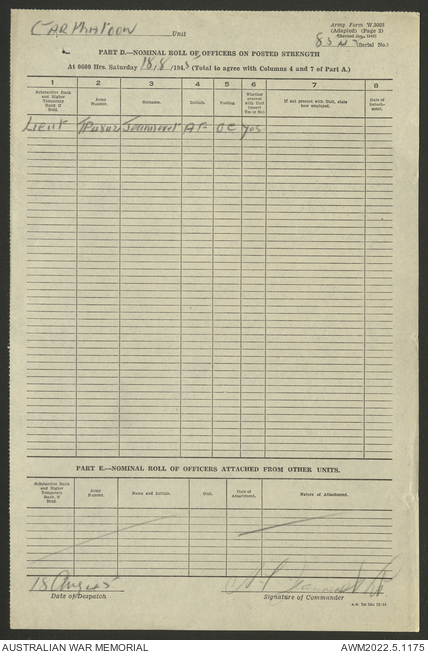 CARPlatoon Unit
Army Form W.3008
(Adapted) (Page 2)
(Serial No.)
PART D.—NOMINAL ROLL OF OFFICERS ON POSTED STRENGTH
At 0600 Hrs. Saturday 18/8/1945 (Total to agree with Columns 4 and 7 of Part A.)
1 2 3 4 5 6 7 8
Substantive Rank and Higher Temporary Rank if Held.
Army Number.
Surname.
Initials.
Posting.
Whether present with Unit (Insert Yes or No)
If not present with Unit, state how employed.
Date of Detachment.
Lieut
OC Yes
PART E.—NOMINAL ROLL OF OFFICERS ATTACHED FROM OTHER UNITS.
Substantive Rank and Higher Temporary Rank, if Held.
Army Number.
Name and Initials.
Unit.
Date of Attachment.
Nature of Attachment.
18 Aug 45
Date of Despatch
Signature of Commander
AUSTRALIAN WAR MEMORIAL
AWM2022.5.1175